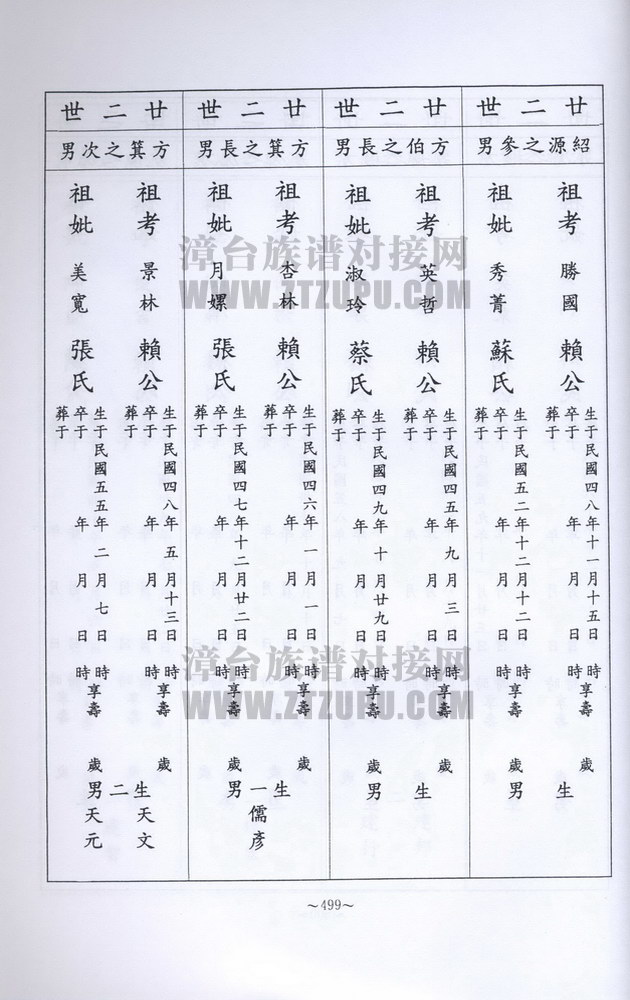 廿二世
紹源之參男
祖考 勝國 賴公
生于民國四八年十一月十五日 時享壽 歲
卒于 年 月 日 時
葬于
祖妣 秀菁 蘇氏
生于民國五二年十二月十二日 時享壽 歲
卒于 年 月 日 時
葬于
生 男
廿二世
方伯之長男
祖考 英哲 賴公
生于民國四五年九月三日 時享壽 歲
卒于 年 月 日 時
葬于
祖妣 淑玲 蔡氏
生于民國四九年十月廿九日 時享壽 歲
卒于 年 月 日 時
葬于
生 男
廿二世
方箕之長男
祖考 杏林 賴公
生于民國四六年一月一日 時享壽 歲
卒于 年 月 日 時
葬于
祖妣 月嫘 張氏
生于民國四七年十二月廿二日 時享壽 歲
卒于 年 月 日 時
葬于
生一男
儒彥
廿二世
方箕之次男
祖考 景林 賴公
生于民國四八年五月十三日 時享壽 歲
卒于 年 月 日 時
葬于
祖妣 美寬 張氏
生于民國五五年二月七日 時享壽 歲
卒于 年 月 日 時
葬于
生二男
天文
天元
~499~
漳台族谱对接网
WWW.ZTZUPU.COM
漳台族谱对接网
WWW.ZTZUPU.COM